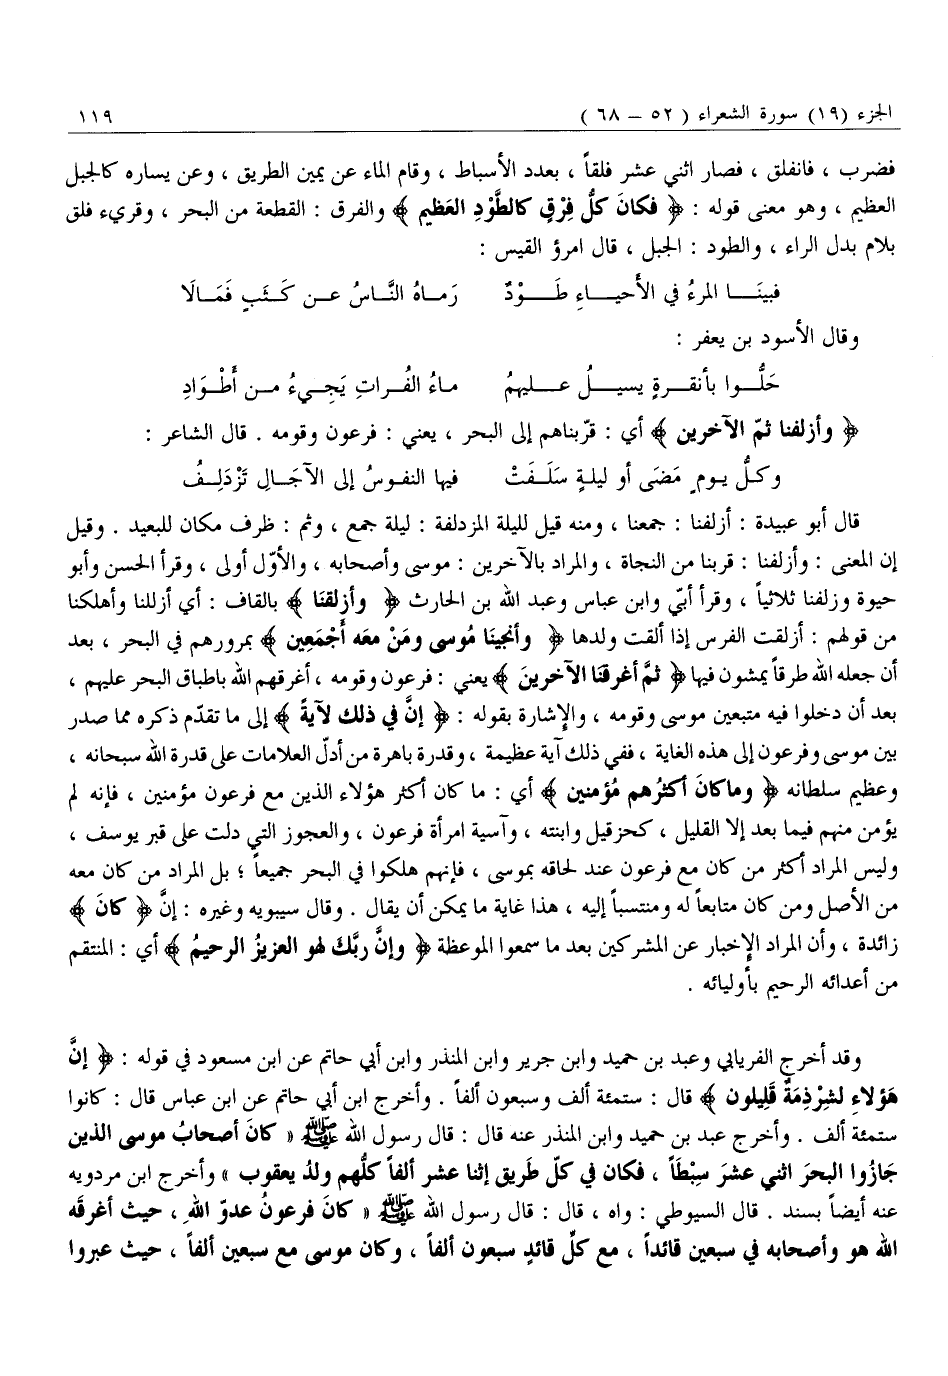 الجزء (١٩) سورة الشعراء ( ٥٢ – ٦٨ ) ١١٩
فضرب ، فانفلق ، فصار اثني عشر فلقاً ، بعدد الأسباط ، وقام الماء عن يمين الطريق ، وعن يساره كالجبل
العظيم ، وهو معنى قوله : ﴿ فكانَ كلُّ فِرْقٍ كالطَّوْدِ العَظيم ﴾ والفرق : القطعة من البحر ، وقريء فلق
بلام بدل الراء ، والطود : الجبل ، قال امرؤ القيس :
فبينَـــا المرءُ في الأحيـــاءِ طَــــوْدٌ رَمـاهُ النَّـاسُ عـن كَـثَبٍ فَمَـالَا
وقال الأسود بن يعفر :
حَلُّـــوا بأنقـــرةٍ يسيـــلُ عـــليهمُ مـاءُ الفُـراتِ يَجِـيءُ مـن أَطْـوَادِ
﴿ وأزلفنا ثمّ الآخرين ﴾ أي : قرّبناهم إلى البحر ، يعني : فرعون وقومه . قال الشاعر :
وكـلُّ يـومٍ مَضَى أو ليلةٍ سَـلَـفَتْ فيها النفـوسُ إلى الآجَـالِ تَزْدَلِـفُ
قال أبو عبيدة : أزلفنا : جمعنا ، ومنه قيل لليلة المزدلفة : ليلة جمع ، وثم : ظرف مكان للبعيد . وقيل
إن المعنى : وأزلفنا : قربنا من النجاة ، والمراد بالآخرين : موسى وأصحابه ، والأوّل أولى ، وقرأ الحسن وأبو
حيوة وزلفنا ثلاثياً ، وقرأ أبيّ وابن عباس وعبد الله بن الحارث ﴿ وأزلقنَا ﴾ بالقاف : أي أزللنا وأهلكنا
من قولهم : أزلقت الفرس إذا ألقت ولدها ﴿ وأنجينَا مُوسى ومَنْ معَه أَجْمَعِين ﴾ بمرورهم في البحر ، بعد
أن جعله الله طرقاً يمشون فيها ﴿ ثمَّ أغرقنَا الآخرينَ ﴾ يعني : فرعون وقومه ، أغرقهم الله باطباق البحر عليهم ،
بعد أن دخلوا فيه متبعين موسى وقومه ، والإشارة بقوله : ﴿ إنَّ في ذلك لآيةً ﴾ إلى ما تقدّم ذكره مما صدر
بين موسى وفرعون إلى هذه الغاية ، ففي ذلك آية عظيمة ، وقدرة باهرة من أدلّ العلامات على قدرة الله سبحانه ،
وعظيم سلطانه ﴿ وماكانَ أكثرُهم مُؤمنين ﴾ أي : ما كان أكثر هؤلاء الذين مع فرعون مؤمنين ، فإنه لم
يؤمن منهم فيما بعد إلا القليل ، كحزقيل وابنته ، وآسية امرأة فرعون ، والعجوز التي دلت على قبر يوسف ،
وليس المراد أكثر من كان مع فرعون عند لحاقه بموسى ، فإنهم هلكوا في البحر جميعاً ؛ بل المراد من كان معه
من الأصل ومن كان متابعاً له ومنتسباً إليه ، هذا غاية ما يمكن أن يقال . وقال سيبويه وغيره : إنَّ ﴿ كانَ ﴾
زائدة ، وأن المراد الإخبار عن المشركين بعد ما سمعوا الموعظة ﴿ وإنَّ ربَّكَ لهو العزيزُ الرحيمُ ﴾ أي : المنتقم
من أعدائه الرحيم بأوليائه .
وقد أخرج الفريابي وعبد بن حميد وابن جرير وابن المنذر وابن أبي حاتم عن ابن مسعود في قوله : ﴿ إنَّ
هَؤلاءِ لشرْذِمَةٌ قَلِيلون ﴾ قال : ستمئة ألف وسبعون ألفاً . وأخرج ابن أبي حاتم عن ابن عباس قال : كانوا
ستمئة ألف . وأخرج عبد بن حميد وابن المنذر عنه قال : قال رسول الله ﷺ « كانَ أصحابُ موسى الذين
جَازُوا البحرَ اثني عشرَ سِبْطَاً ، فكان في كلّ طَريق إثنا عشر ألفاً كلُّهم ولدُ يعقوب » وأخرج ابن مردويه
عنه أيضاً بسند . قال السيوطي : واه ، قال : قال رسول الله ﷺ « كانَ فرعونُ عدوّ اللهِ ، حيث أغرقَه
الله هو وأصحابه في سبعين قائداً ، مع كلّ قائدٍ سبعون ألفاً ، وكان موسى مع سبعين ألفاً ، حيث عبروا